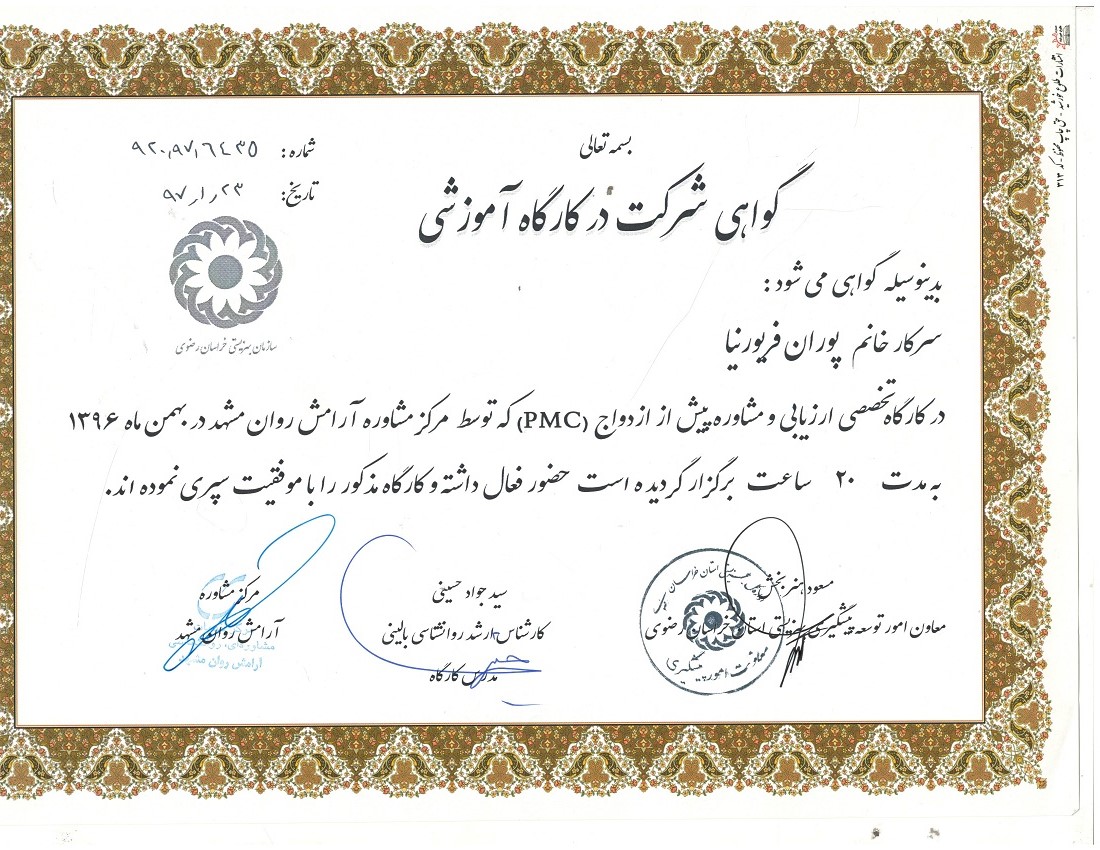 بسمه تعالی
شماره: ۹۲۰٫۹۷٫۶۴۳۵
تاریخ: ۹۷٫۱٫۲۳
گواهی شرکت در کارگاه آموزشی
سازمان بهزیستی خراسان رضوی
بدینوسیله گواهی می شود :
سرکار خانم پوران فریورنیا
در کارگاه تخصصی ارزیابی و مشاوره پیش از ازدواج (PMC) که توسط مرکز مشاوره آرامش روان مشهد در بهمن ماه ۱۳۹۶
به مدت ۲۰ ساعت برگزار گردیده است حضور فعال داشته و کارگاه مذکور را با موفقیت سپری نموده اند.
مسعود هنربخش
معاون امور توسعه پیشگیری بهزیستی استان خراسان رضوی
معاونت امور پیشگیری
سید جواد حسینی
کارشناس ارشد روانشناسی بالینی
مدرس کارگاه
مرکز مشاوره
آرامش روان مشهد
آرامش روان مشهد